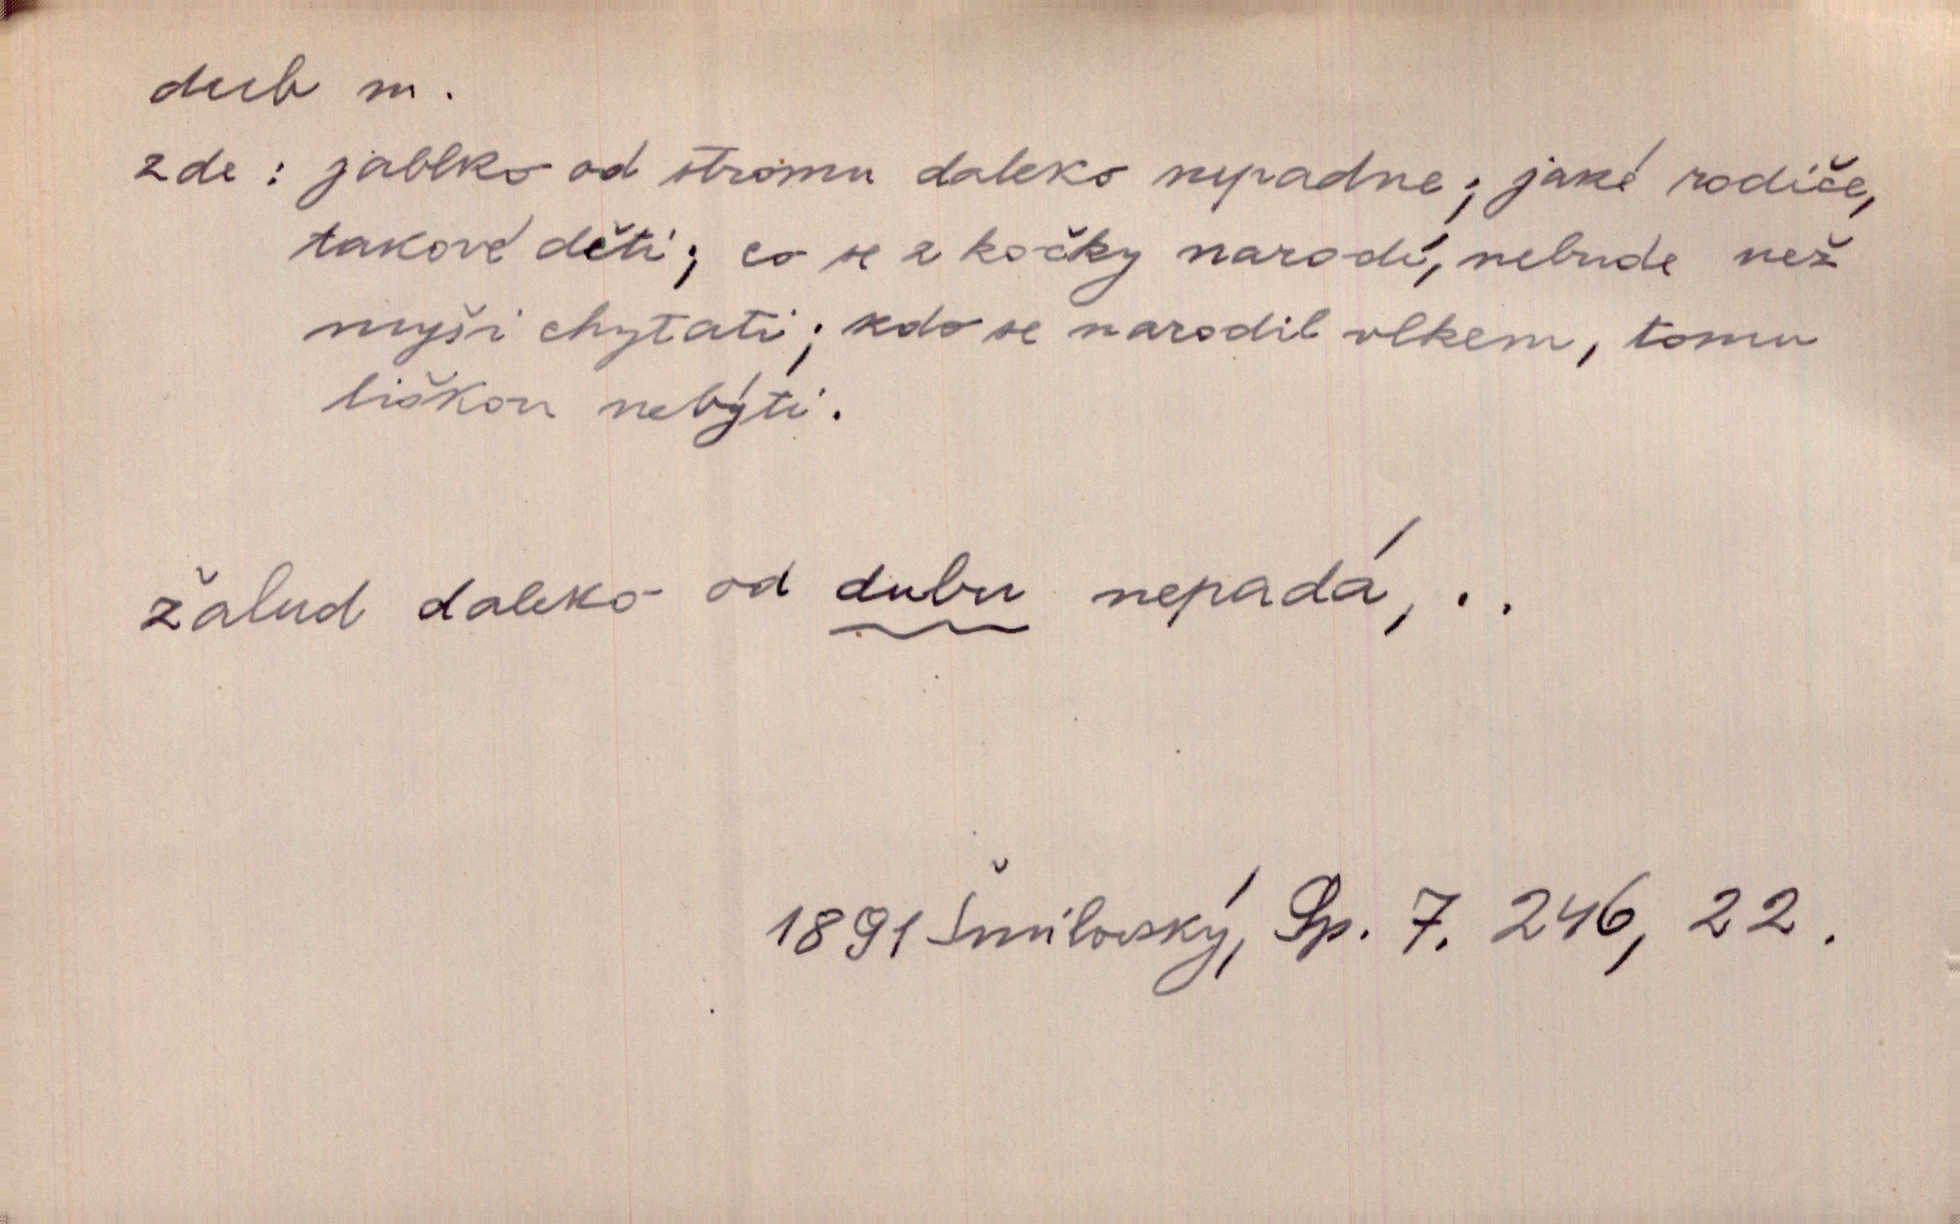 dub m.
zde: jablko od stromu daleko nepadne; jaké rodiče,
takové děti; co se z kočky narodí, nebude než
myši chytati; kdo se narodil vlkem, tomu
liškou nebýti.
žalud daleko od dubu nepadá, ..
1891 Šmilovský, Sp. 7. 246, 22.